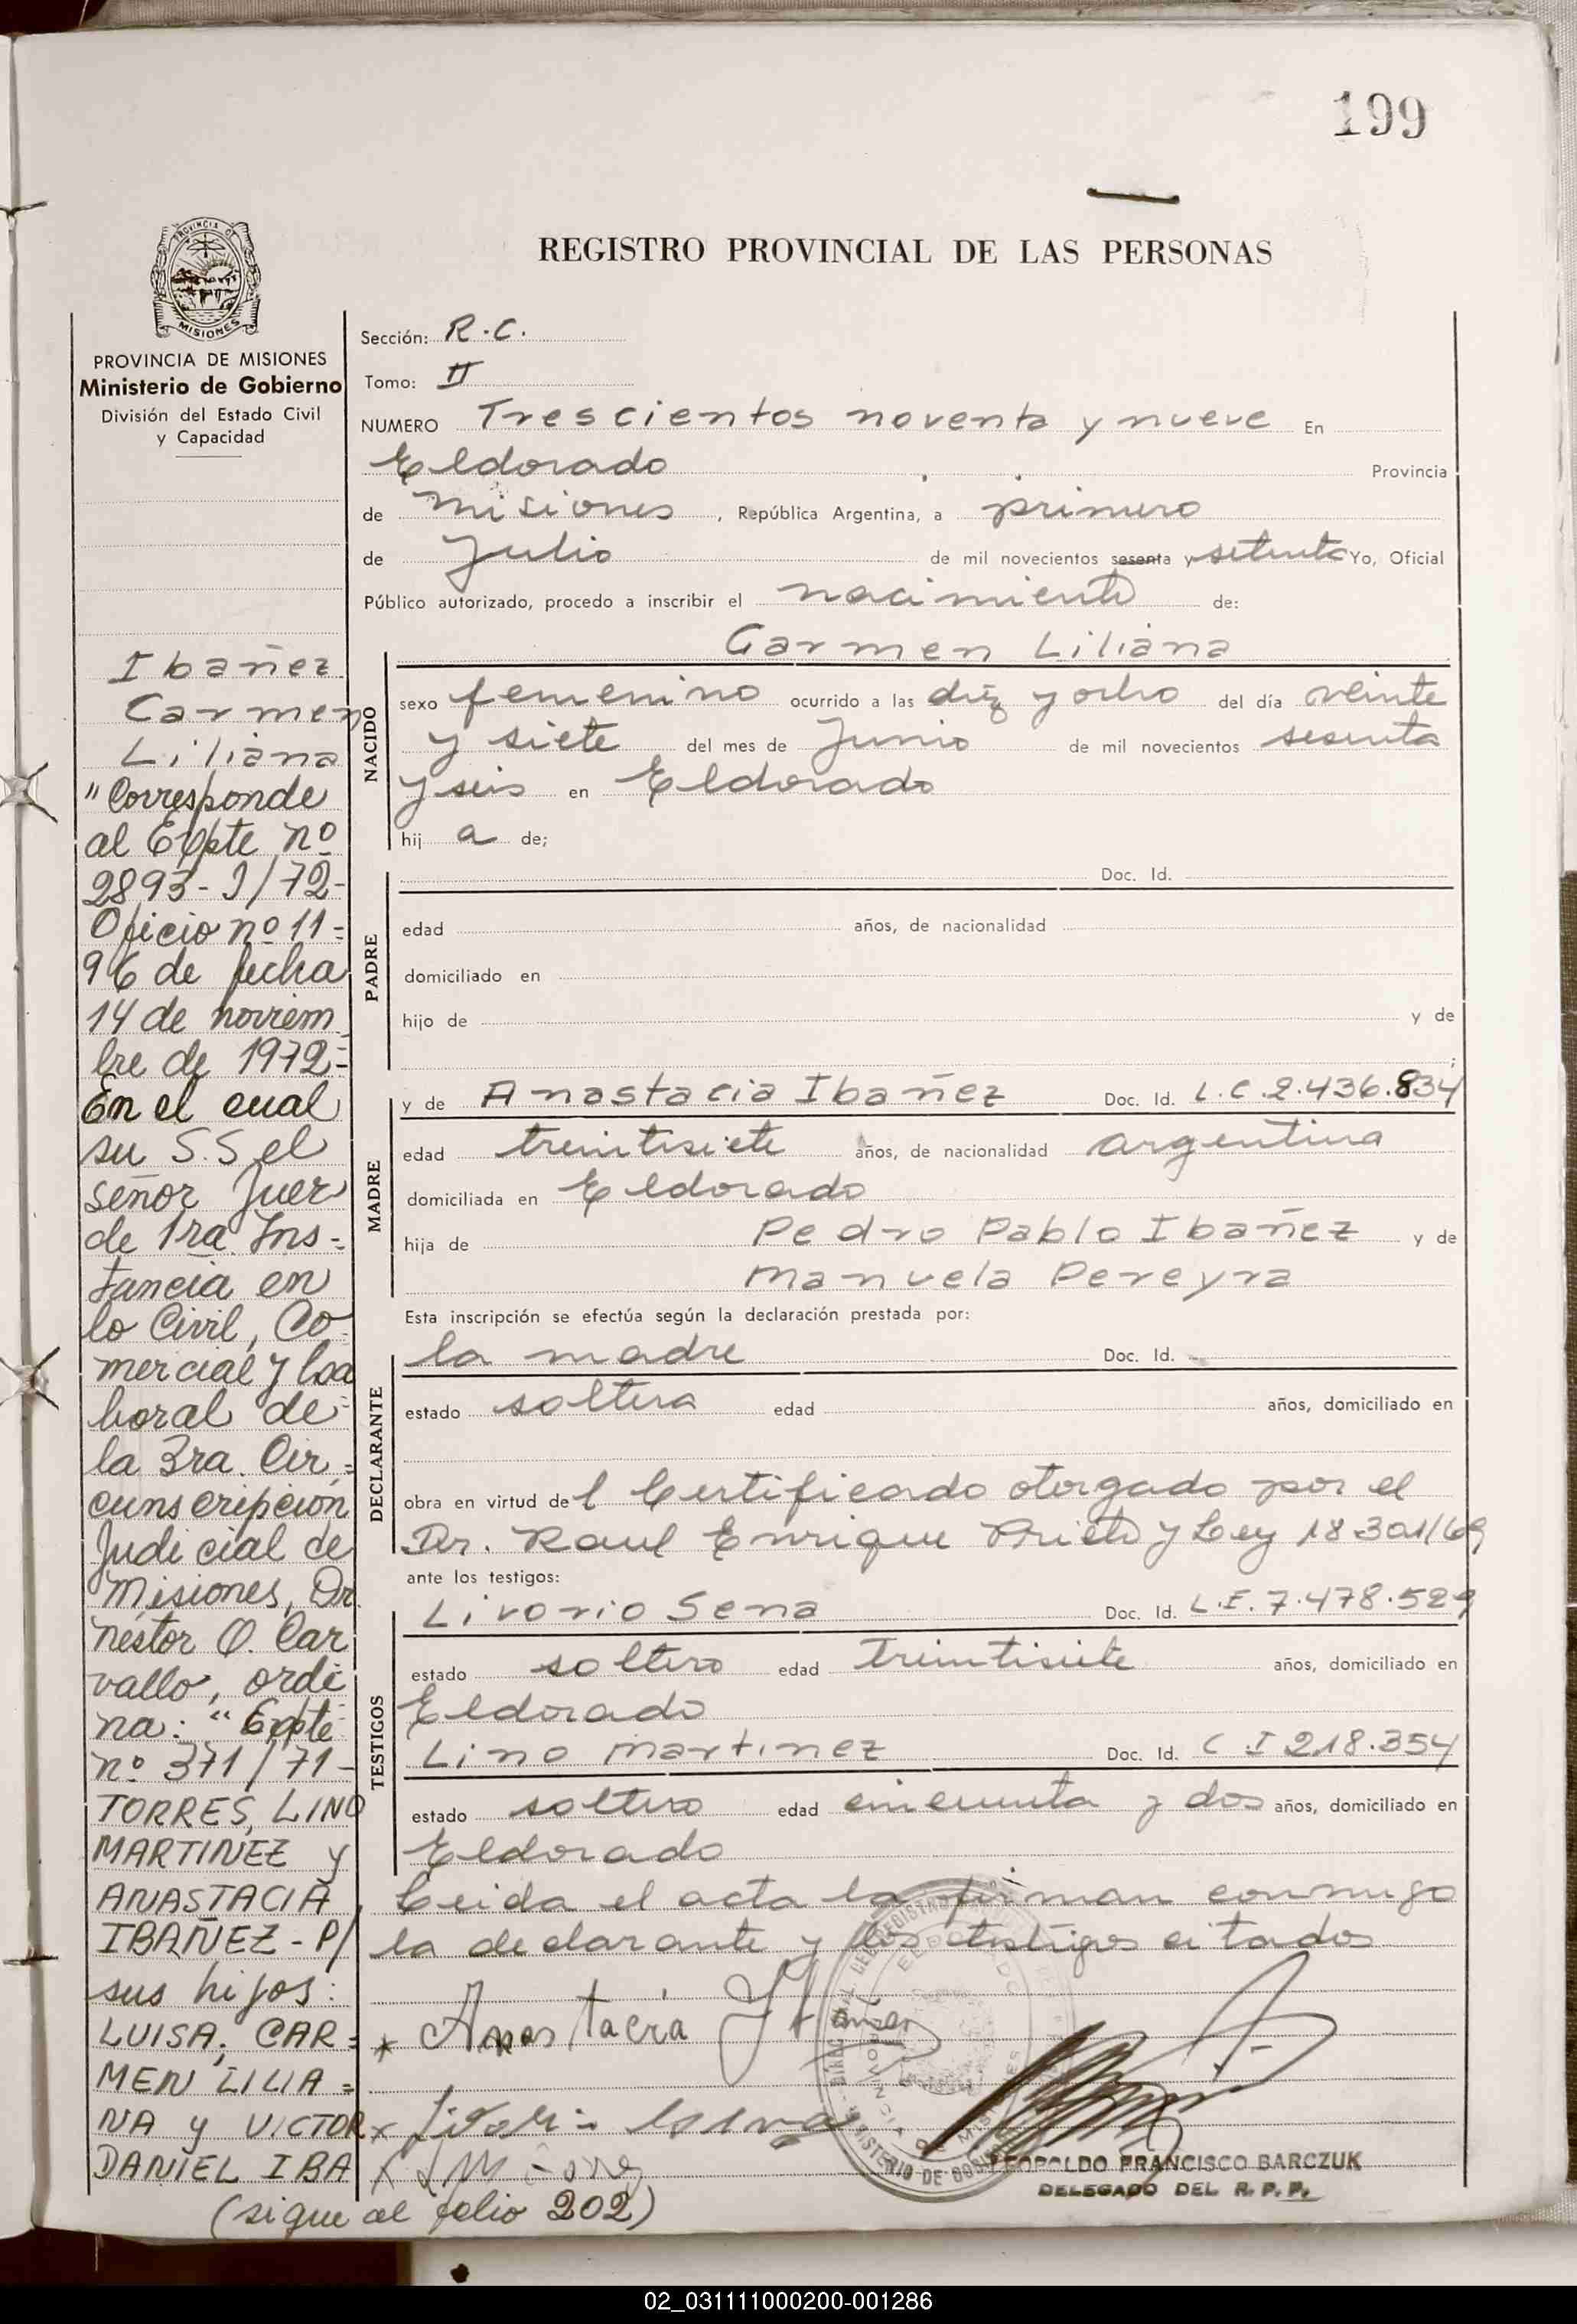 199
REGISTRO PROVINCIAL DE LAS PERSONAS
PROVINCIA DE MISIONES
Ministerio de Gobierno
División del Estado Civil
y Capacidad
Ibañez
Carmen
Liliana
"Corresponde
al Expte nº
2893-I/72-
Oficio nº 11=
96 de fecha
14 de noviem
bre de 1972=
En el cual
su S.S el
señor Juez
de 1ra. Ins=
tancia en
lo Civil, Co
mercial y Laa
boral de
la 3ra. Cir=
cunscripción
Judicial de
Misiones, Dr.
nestor O. Car
vallo, orde
na: "Expte
nº 371/71-
TORRES, LINO
MARTINEZ y
ANASTACIA
IBAÑEZ - P/
sus hijos:
LUISA; CAR=
MEN LILIA=
NA y VICTOR
DANIEL IBA
(sigue al folio 202)
Sección: R.C.
Tomo: II
NUMERO Trescientos noventa y nueve En
Eldorado Provincia
de Misiones, República Argentina, a primero
de Julio de mil novecientos sesenta y setenta Yo, Oficial
Público autorizado, procedo a inscribir el nacimiento de:
Carmen Liliana
NACIDO
sexo femenino ocurrido a las diez y ocho del día veinte
y siete del mes de Junio de mil novecientos sesenta
y seis en Eldorado
hij a de;
PADRE
Doc. Id.
edad años, de nacionalidad
domiciliado en
hijo de y de
;
MADRE
y de Anastacia Ibañez Doc. Id. L.C.2.436.834
edad treintisiete años, de nacionalidad argentina
domiciliada en Eldorado
hija de Pedro Pablo Ibañez y de
Manuela Pereyra
Esta inscripción se efectúa según la declaración prestada por:
DECLARANTE
la madre Doc. Id.
estado soltera edad años, domiciliado en
obra en virtud del Certificado otorgado por el
Dr. Raul Enrique Prieto y Ley 18301/69
ante los testigos:
TESTIGOS
Livorio Sena Doc. Id. L.E.7.478.529
estado soltero edad Treintisiete años, domiciliado en
Eldorado
Lino Martinez Doc. Id. C.I 218.354
estado soltero edad cincuenta y dos años, domiciliado en
Eldorado
Leida el acta la firman conmigo
la declarante y los testigos citados
Anastacia Ibañez
LEOPOLDO FRANCISCO BARCZUK
DELEGADO DEL R.P.P.
02_031111000200-001286